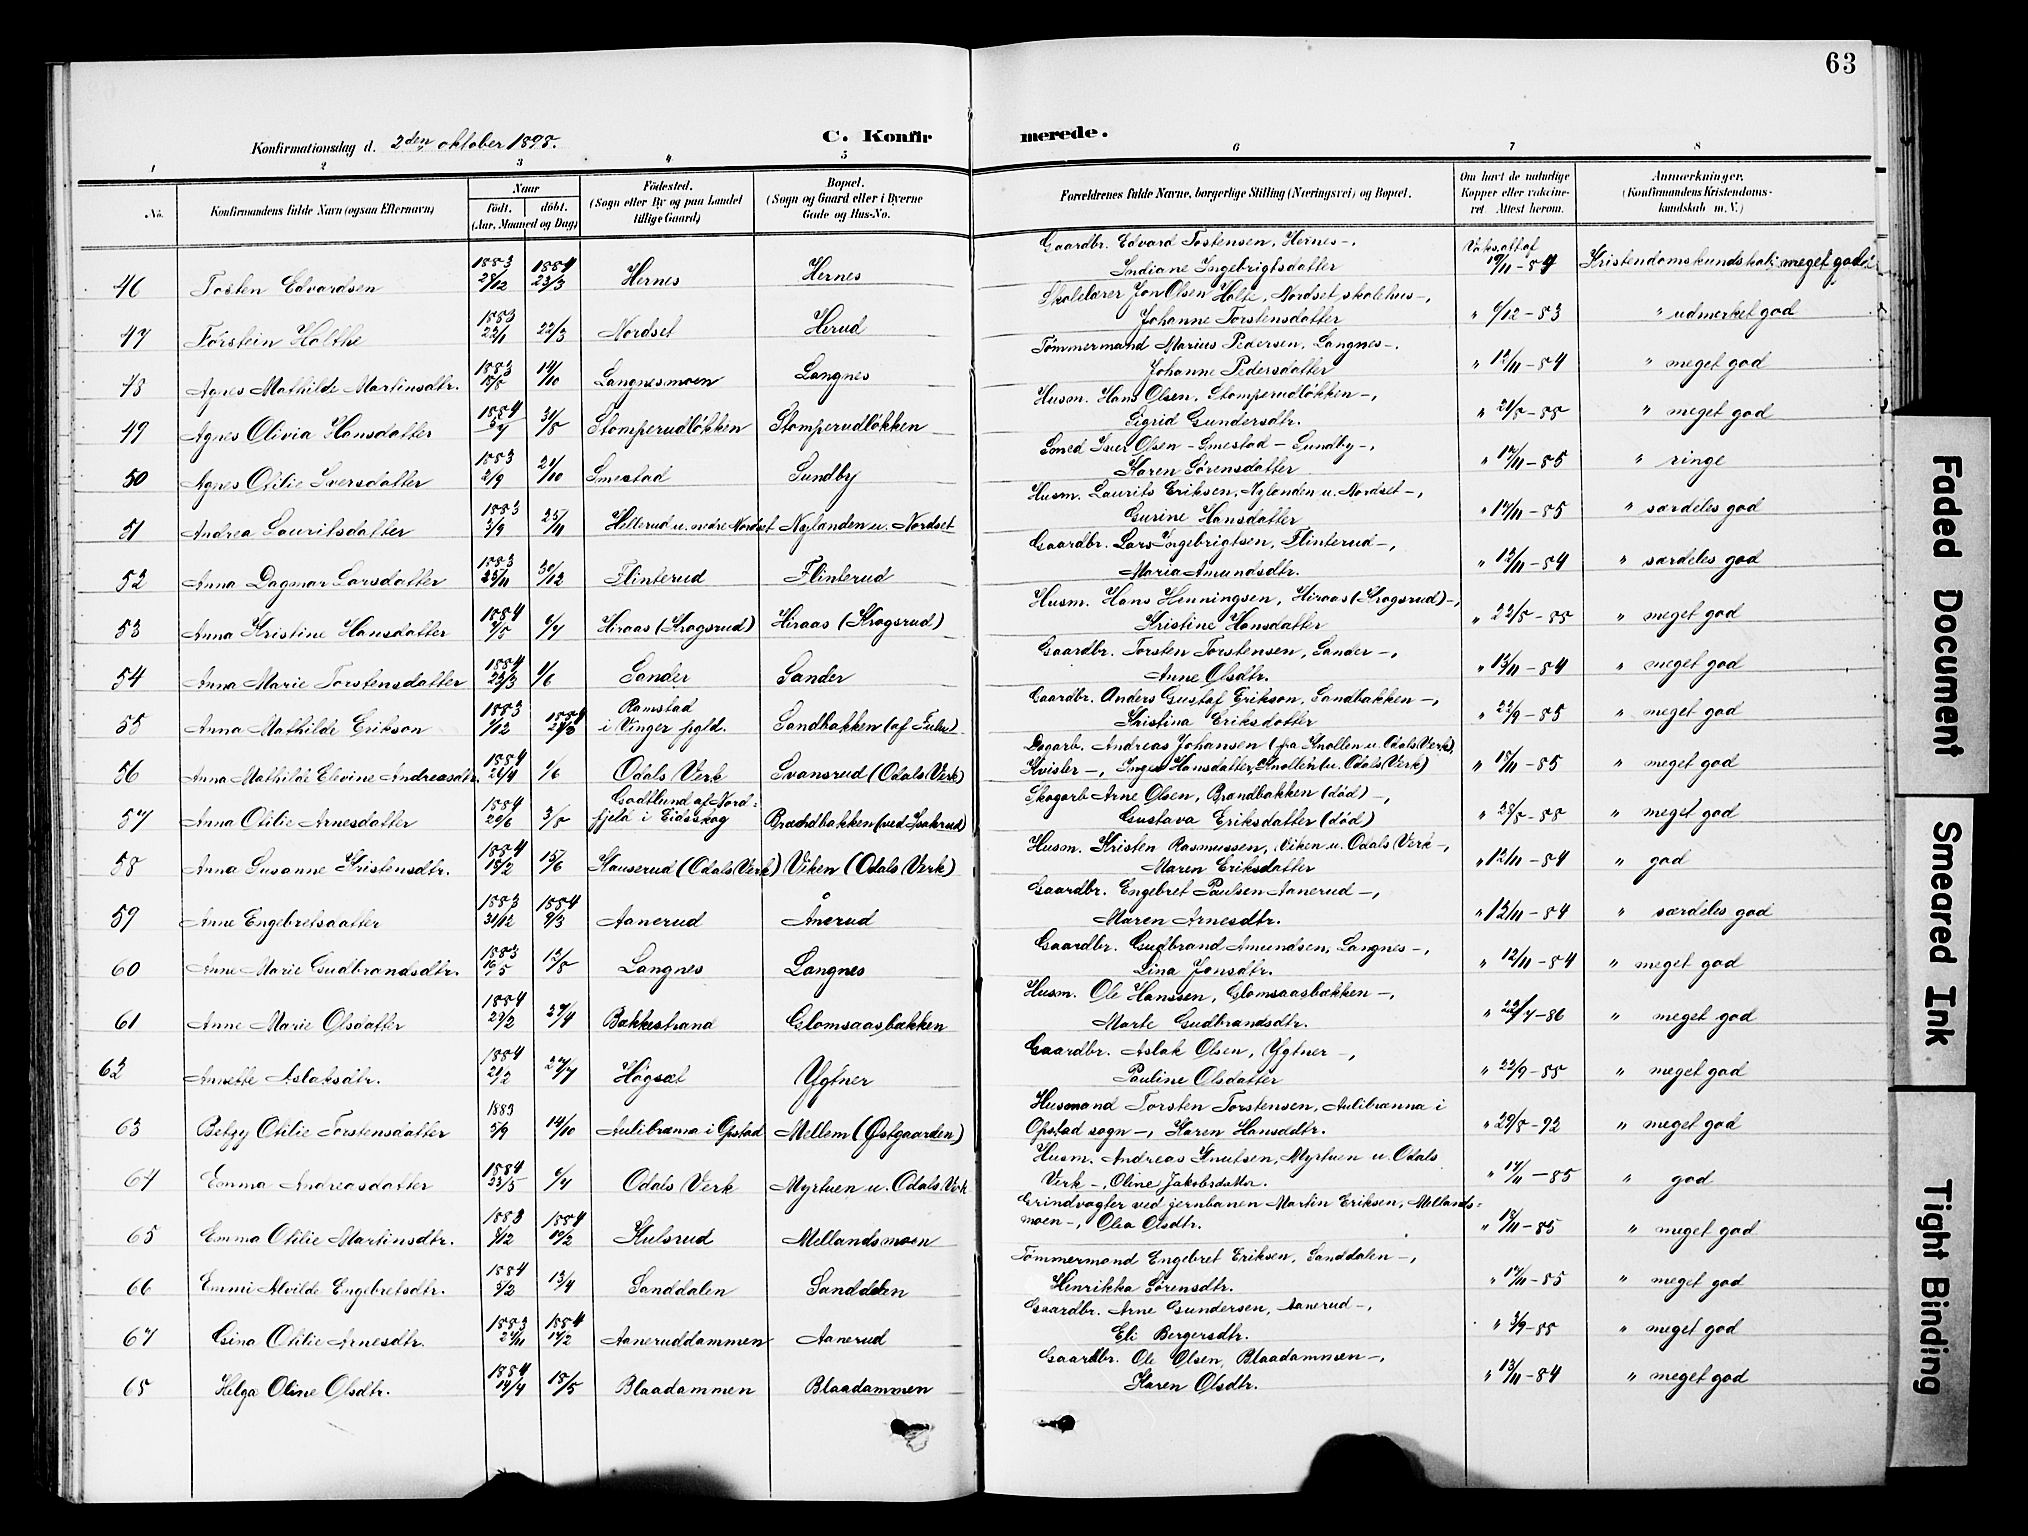 63
Konfirmationsdag d. 2den oktober 1898.
C. Konfir merede.
1 2 3 4 5 6 7 8
No. Konfirmandens fulde Navn (ogsaa Efternavn) Naar födt. döbt. (Aar, Maaned og Dag) Födested. (Sogn eller By og paa Landet tillige Gaard) Bopæl. (Sogn og Gaard eller i Byerne Gade og Hus-No. Forældrenes fulde Navne, borgerlige Stilling (Næringsvei) og Bopæl. Om havt de naturlige Kopper eller vakcineret. Attest herom. Anmærkninger. (Konfirmandens Kristendomskundskab m. V.)
46 Tosten Edvardsen 1883 28/12 1884 23/3 Hernes Hernes Gaardbr. Edvard Tostensen, Hernes -, Indiane Ingebrigtsdatter Vaks.att af 19/11 - 84 Kristendomskundskab: meget god
47 Torstein Holthe 1883 22/1 22/3 Nordset Herud Skolelærer Jon Olsen Holte, Nordset skolehus -, Johanne Torstensdatter " 6/12 - 83 " udmerket god
48 Agnes Mathilde Martinsdtr. 1883 15/8 14/10 Langnesmoen Langnes Tømmermand Marius Pedersen, Langnes -, Johanne Pedersdatter " 12/11 - 84 " meget god
49 Agnes Olivia Hansdatter 1884 5/7 31/8 Stomperudløkken Stomperudløkken Husm. Hans Olsen, Stomperudløkken -, Sigrid Gundersdtr. " 21/5 - 85 " meget god
50 Agnes Otilie Iversdatter 1883 2/9 21/10 Smestad Sundby Smed Iver Olsen - Smestad - Sundby -, Karen Sørensdatter " 17/11 - 85 " ringe
51 Andrea Lauritsdatter 1883 3/9 25/11 Hellerud u. nedre Nordset Nylanden u. Nordset Husm. Laurits Eriksen, Nylanden u. Nordset -, Gurine Hansdatter " 17/11 - 85 " særdeles god
52 Anna Dagmar Larsdatter 1883 23/11 30/12 Flinterud Flinterud Gaardbr. Lars Ingebrigtsen, Flinterud -, Maria Amundsdtr. " 12/11 - 84 " særdeles god
53 Anna Kristine Hansdatter 1884 9/5 6/7 Hiraas (Krogsrud) Hiraas (Krogsrud) Husm. Hans Henningsen, Hiraas (Krogsrud) -, Kristine Hansdatter " 22/5 - 85 " meget god
54 Anna Marie Torstensdatter 1884 23/3 1/6 Sander Sander Gaardbr. Torsten Torstensen, Sander -, Anne Olsdtr. " 13/11 - 84 " meget god
55 Anna Mathilde Erikson 1883 1/12 1884 Ramstad i Vinger pgld. Sandbakken Gaardbr. Anders Gustaf Erikson, Sandbakken -, Kristina Eriksdatter " 22/9 - 85 " meget god
56 Anna Mathilde Elevine Andreasdtr. 1884 26/4 1/6 Odals Verk Svansrud (Odals Verk) Dagarb. Andreas Johansen (fra Knollen u. Odals Verk), Kvisler -, Inger Hansdatter, Knollen (u. Odals Verk) " 17/11 - 85 " meget god
57 Anna Otilie Arnesdatter 1884 22/6 3/8 Godtlund af Nordfjeld i Eidsskog Brændbakken (ved Isakrud) Skogarb Arne Olsen, Brændbakken (død) -, Gustava Eriksdatter (død) " 28/5 - 85 " meget god
58 Anna Susanne Kristensdtr. 1884 18/2 15/6 Stauserud (Odals Verk) Viken (Odals Verk) Husm. Kristen Rasmussen, Viken u. Odals Verk -, Maren Eriksdatter " 12/11 - 84 " god
59 Anne Engebretsdatter 1883 31/12 1884 9/3 Aanerud Ånerud Gaardbr. Engebret Paulsen Aanerud -, Maren Arnesdtr. " 12/11 - 84 " særdeles god
60 Anne Marie Gudbrandsdtr. 1883 16/5 12/8 Langnes Langnes Gaardbr. Gudbrand Amundsen, Langnes -, Lina Jonsdtr. " 12/11 - 84 " meget god
61 Anne Marie Olsdatter 1884 29/2 27/4 Bakkestrand Glomsaasbækken Husm. Ole Hanssen, Glomsaasbækken -, Marte Gudbrandsdtr. " 22/7 - 86 " meget god
62 Annette Aslaksdtr. 1884 21/2 27/4 Høgset Ygtner Gaardbr. Aslak Olsen, Ygtner -, Pauline Olsdatter " 22/9 - 85 " meget god
63 Betzy Otilie Torstensdatter 1883 5/9 14/10 Aulibrænna i Opstad Mellem (Østgaarden) Husmand Torsten Torstensen, Aulibrænna i Opstad sogn -, Karen Hansddtr. " 29/5 - 92 " meget god
64 Emma Andreasdatter 1884 23/5 6/7 Odals Verk Myrtuen u. Odals Verk Husm. Andreas Knutsen, Myrtuen u. Odals Verk -, Oline Jakobsdatter. " 17/11 - 85 " god
65 Emma Otilie Martinsdtr. 1883 8/12 1884 10/2 Kulsrud Mellandsmoen Grindvogter ved jernbanen Martin Eriksen, Mellandsmoen -, Olea Olsdtr. " 18/11 - 85 " meget god
66 Emmi Alvilde Engebretsdtr. 1884 5/2 13/4 Sanddalen Sanddalen Tømmermand Engebret Eriksen, Sanddalen -, Henrikka Sørensdtr. " 17/11 - 85 " meget god
67 Gina Otilie Arnesdtr. 1883 27/11 1884 17/2 Aaneruddammen Aanerud Gaardbr. Arne Gundersen, Aanerud -, Eli Bergersdtr. " 3/9 - 85 " meget god
68 Helga Oline Olsdtr. 1884 14/4 18/5 Blaadammen Blaadammen Gaardbr. Ole Olsen, Blaadammen -, Karen Olsdtr. " 13/11 - 84 " meget god
Faded Document
Smeared Ink
Tight Binding